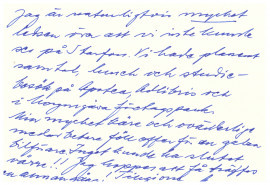 Jag är naturligtvis mycket
ledsen över att vi inte kunde
ses på Starfors. Vi hade planerat
samtal, lunch och studie-
besök på Apotea, Adlibris och
i Morgongåva företagspark.
Min mycket käre och ovärderlige
medarbetare föll offer för en galen
bilförare. Inget kunde ha slutat
värre!! Jag hoppas att få träffas
en annan gång!